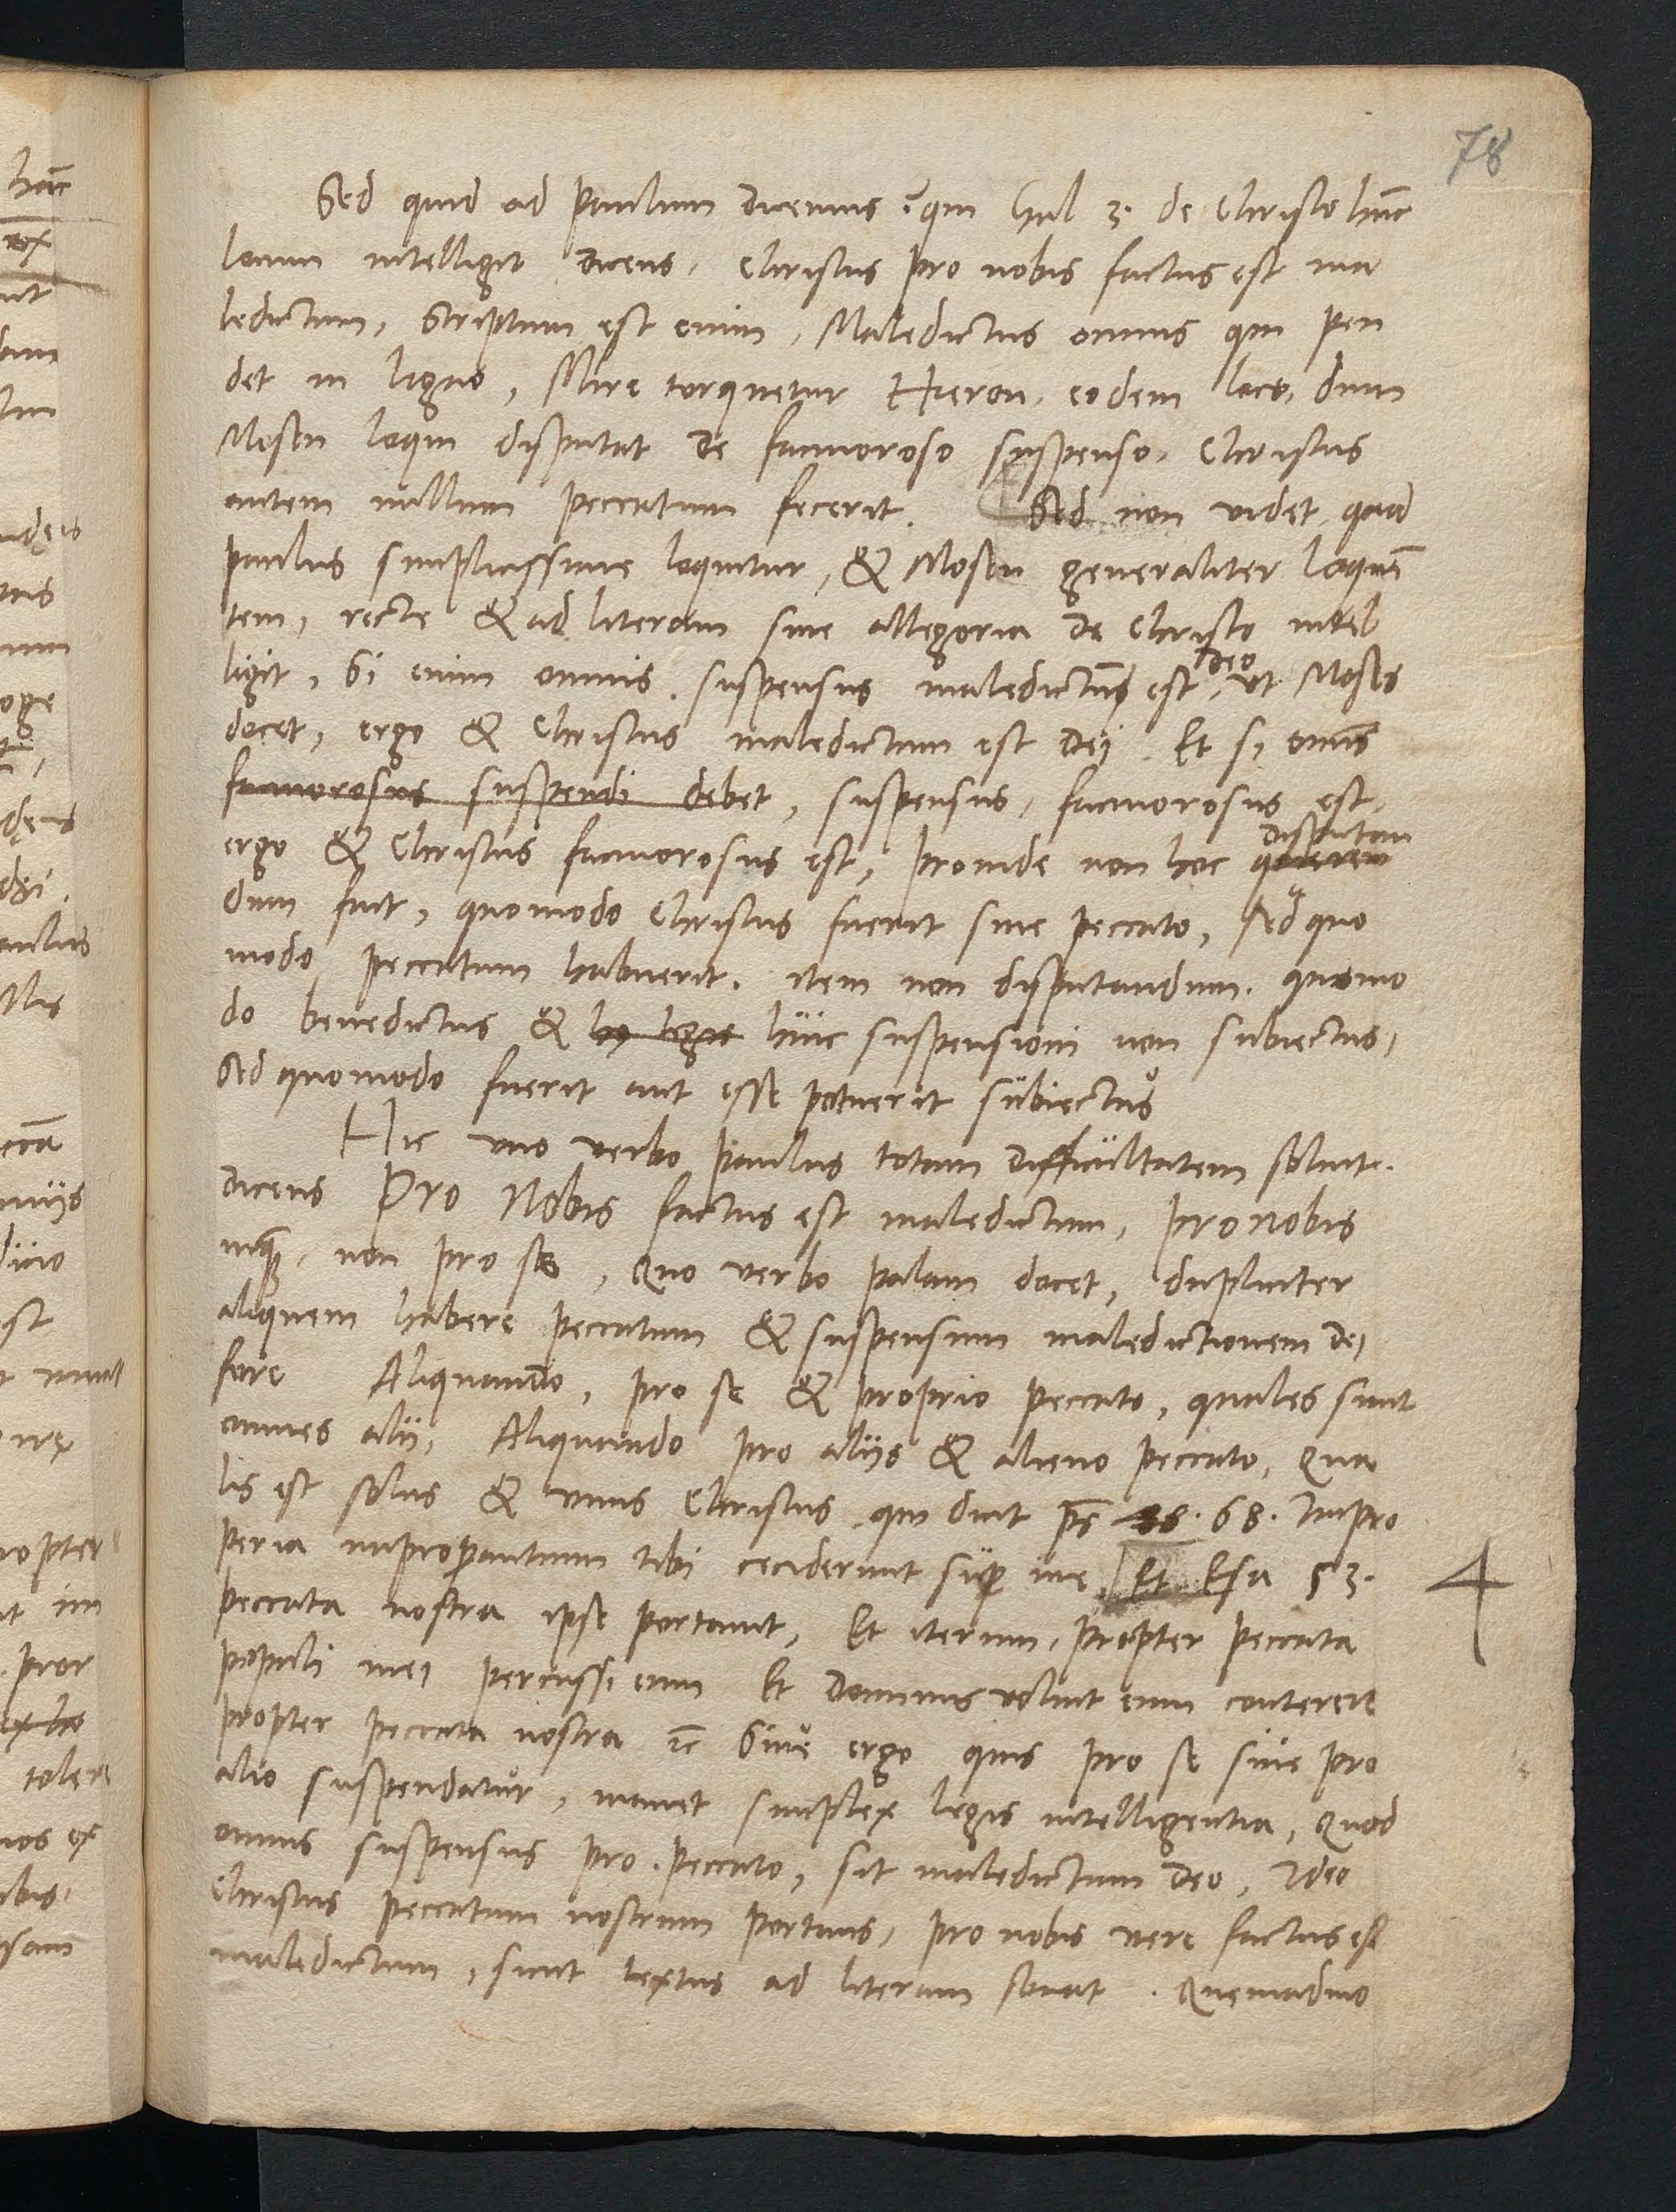 78
Sed quid ad Paulum dicemus? qui Gal 3. de Christo hunc
locum intelligit dicens, Christus pro nobis factus est ma
ledictum, Scriptum est enim, Maledictus omnis qui pen
det in ligno, Mire torquetur Hieron. eodem loco, dum
Mosen loqui disputat de facinoroso suspenso, Christus
autem nullum peccatum fecerit. Sed non videt, quod
paulus simplicissime loquitur, & Mosen generaliter loquen
tem, recte & ad literam sine allegoria de Christo intel
ligit, Si enim omnis suspensus maledictus est Deo, ut Moses
docet, ergo & Christus maledictum est Dei. Et si omnis
facinorosus suspendi debet, suspensus, facinorosus est,
ergo & Christus facinorosus est, Proinde non hoc quaeren disputan
dum fuit, quomodo Christus fuerit sine peccato, sed quo
modo peccatum habuerit. item non disputandum, quomo
do benedictus & huic suspensioni non subiectus,
Sed quomodo fuerit aut esse potuerit subiectus
Hic uno verbo Paulus totam difficultatem soluit.
dicens Pro Nobis factus est maledictum, pro nobis
inquam, non pro se, Quo verbo palam docet, dupliciter
aliquem habere peccatum & suspensum maledictionem dei
fore Aliquando, pro se & proprio peccato, quales sunt
omnes alij, Aliquando pro alijs & alieno peccato, Qua
lis est solus & unus Christus qui dicit ps 68. Impro
peria improperantium tibi ceciderunt super me. Et Esa 53.
4
peccata nostra ipse portauit, Et iterum, Propter peccata
populi mei percussi eum Et Dominus voluit eum conterere
propter peccata nostra &c Siue ergo quis pro se siue pro
alio suspendatur, manet simplex legis intelligentia, Quod
omnis suspensus pro peccato, sit maledictum Deo, Ideo
Christus peccatum nostrum portans, pro nobis vere factus est
maledictum, sicut textus ad literam sonat. Quemadmo